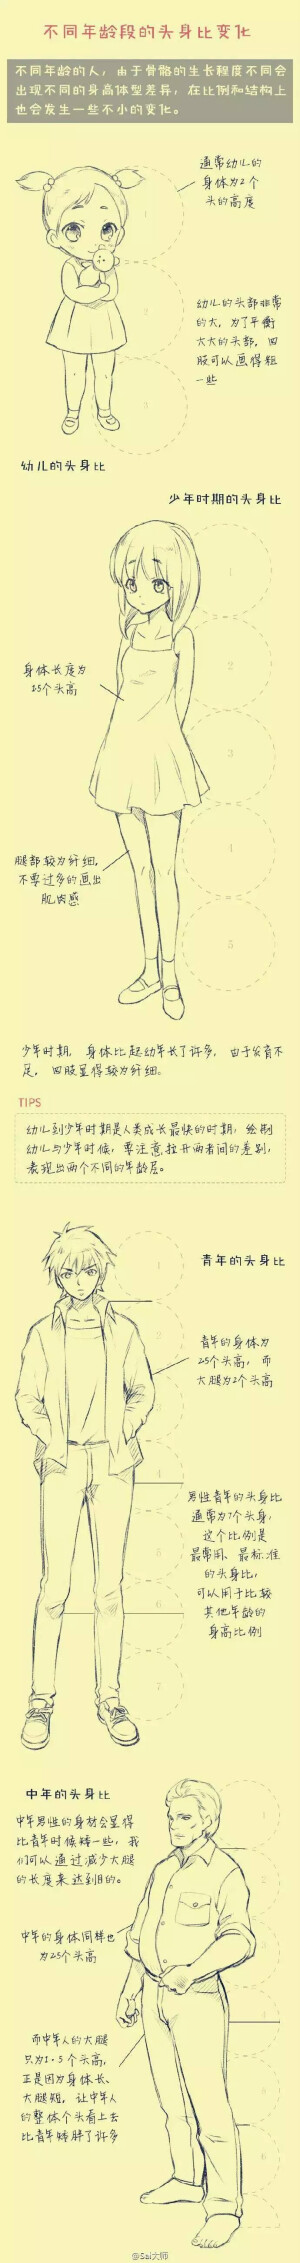 不同年龄段的头身比变化
不同年龄的人，由于骨骼的生长程度不同会
出现不同的身高体型差异，在比例和结构上
也会发生一些不小的变化。
通常幼儿的
身体为2个
头的高度
幼儿的头部非常
的大，为了平衡
大大的头部，四
肢可以画得粗
一些
1
2
3
幼儿的头身比
少年时期的头身比
身体长度为
1.5个头高
腿部较为纤细，
不要过多的画出
肌肉感
1
2
3
4
5
少年时期，身体比起幼年长了许多，由于发育不
足，四肢显得较为纤细。
TIPS
幼儿到少年时期是人类成长最快的时期，绘制
幼儿与少年时候，要注意拉开两者间的差别，
表现出两个不同的年龄层。
青年的头身比
青年的身体为
2.5个头高，而
大腿为2个头高
男性青年的头身比
通常为7个头身，
这个比例是
最常用、最标准
的头身比，
可以用于比较
其他年龄的
身高比例
中年的头身比
中年男性的身材会显得
比青年时候矮一些，我
们可以通过减少大腿
的长度来达到目的。
中年的身体同样也
为2.5个头高
而中年人的大腿
只为1.5个头高，
正是因为身体长、
大腿短，让中年人
的整体个头看上去
比青年矮胖了许多
@Sai大师